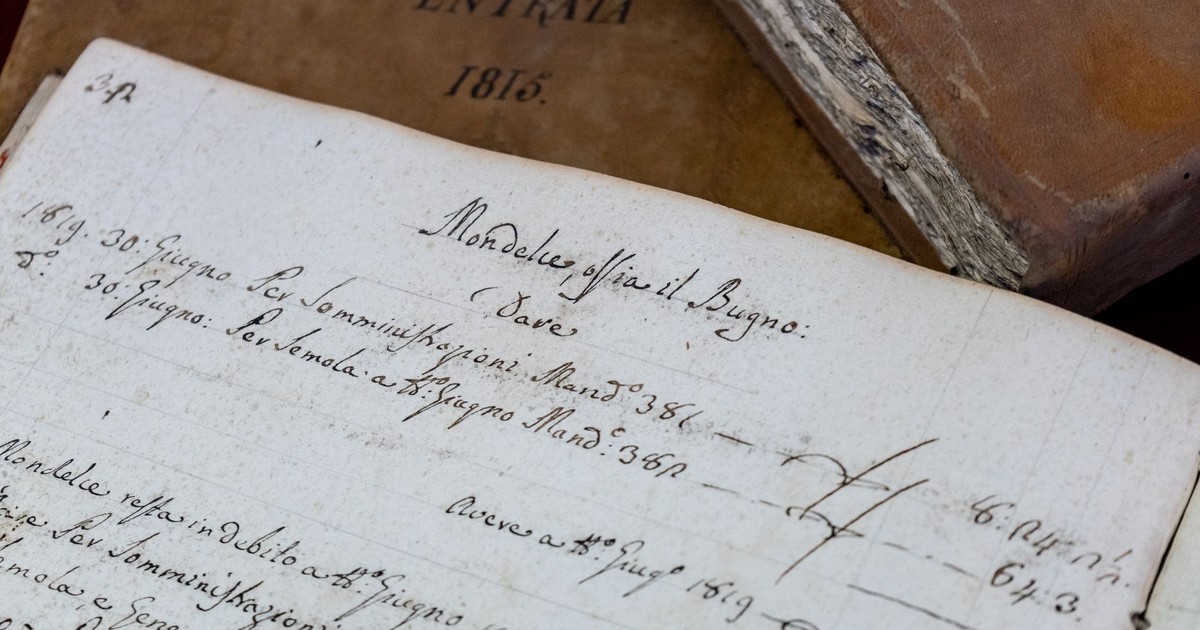 ENTRATA
1815.
32
Mondelce, ossia il Bugno:
Dare
1819. 30: Giugno Per Somministrazioni Mand.º 381
d.º 30: Giugno: Per Semola a tt.º Giugno Mand.º: 382
64 3.
Avere a tt.º Giug.º 1819
Mondelce resta in debito a tt.º Giugno
Per Somministrazioni
Semola, e